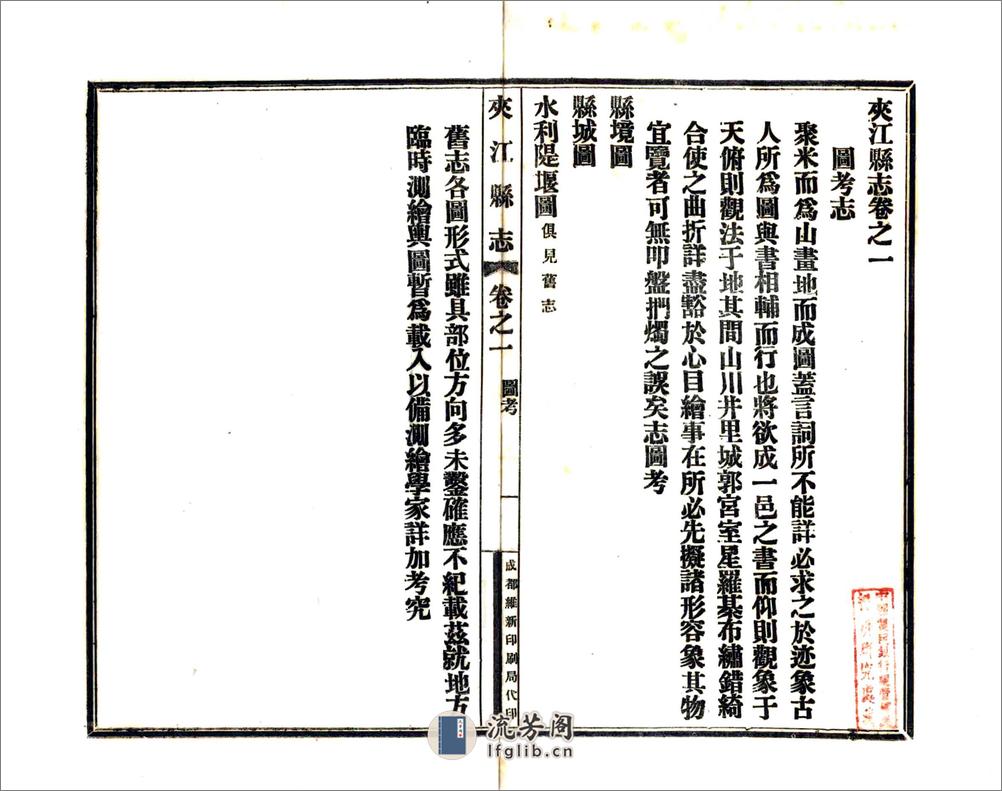 夾江縣志卷之一
圖考志
聚米而爲山畫地而成圖蓋言詞所不能詳必求之於迹象古
人所爲圖與書相輔而行也將欲成一邑之書而仰則觀象于
天俯則觀法于地其間山川井里城郭宮室星羅棊布繡錯綺
合使之曲折詳盡豁於心目繪事在所必先擬諸形容象其物
宜覽者可無叩盤捫燭之誤矣志圖考
縣境圖
縣城圖
水利隄堰圖俱見舊志
夾江縣志 卷之一 圖考 一 成都維新印刷局代印
舊志各圖形式雖具部位方向多未鑿確應不紀載茲就地方
臨時測繪輿圖暫爲載入以備測繪學家詳加考究
流芳阁
lfglib.cn